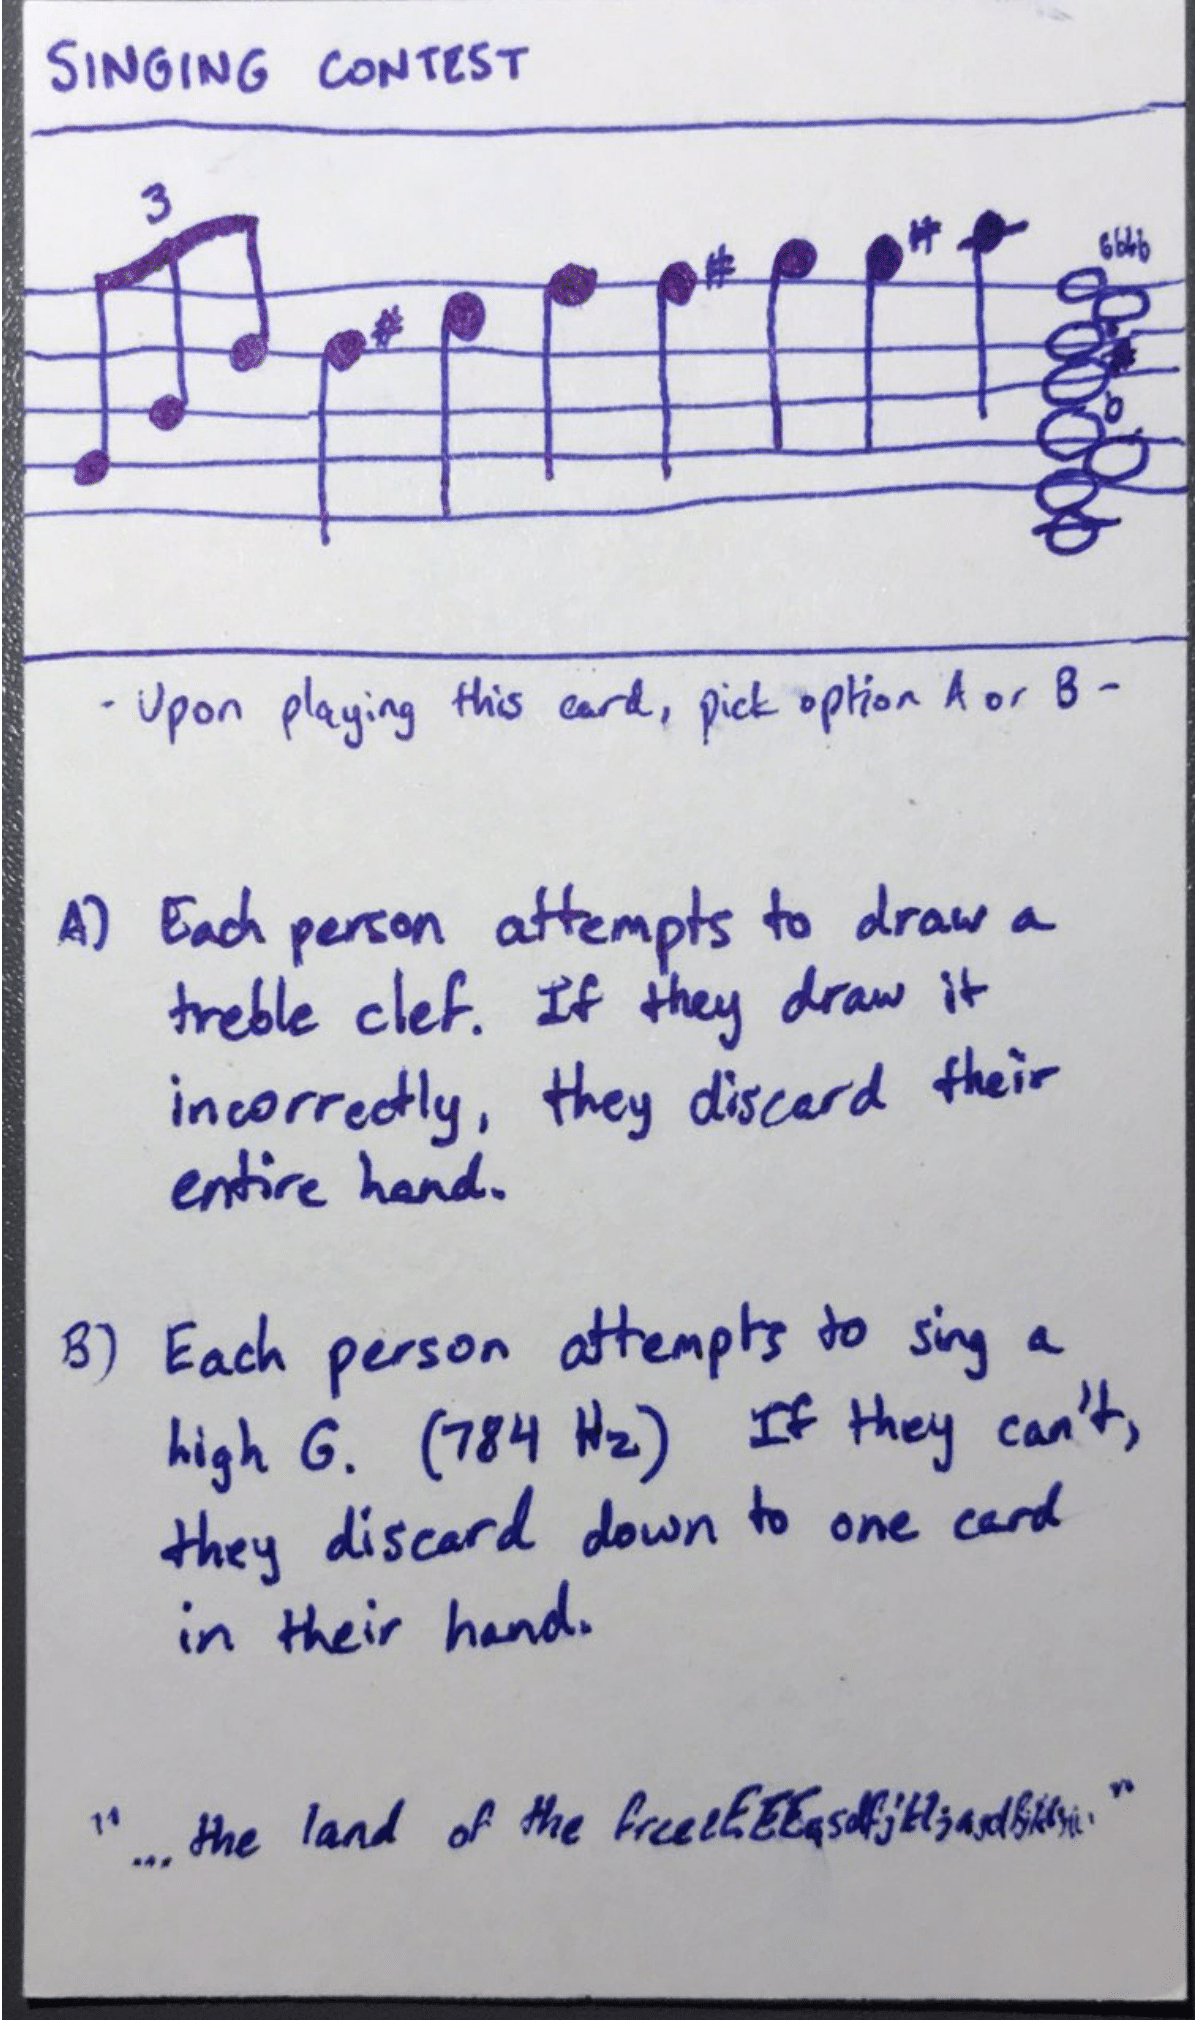 SINGING CONTEST
3
# # #
- Upon playing this card, pick option A or B -
A) Each person attempts to draw a
treble clef. If they draw it
incorrectly, they discard their
entire hand.
B) Each person attempts to sing a
high G. (784 Hz) If they can't,
they discard down to one card
in their hand.
"... the land of the